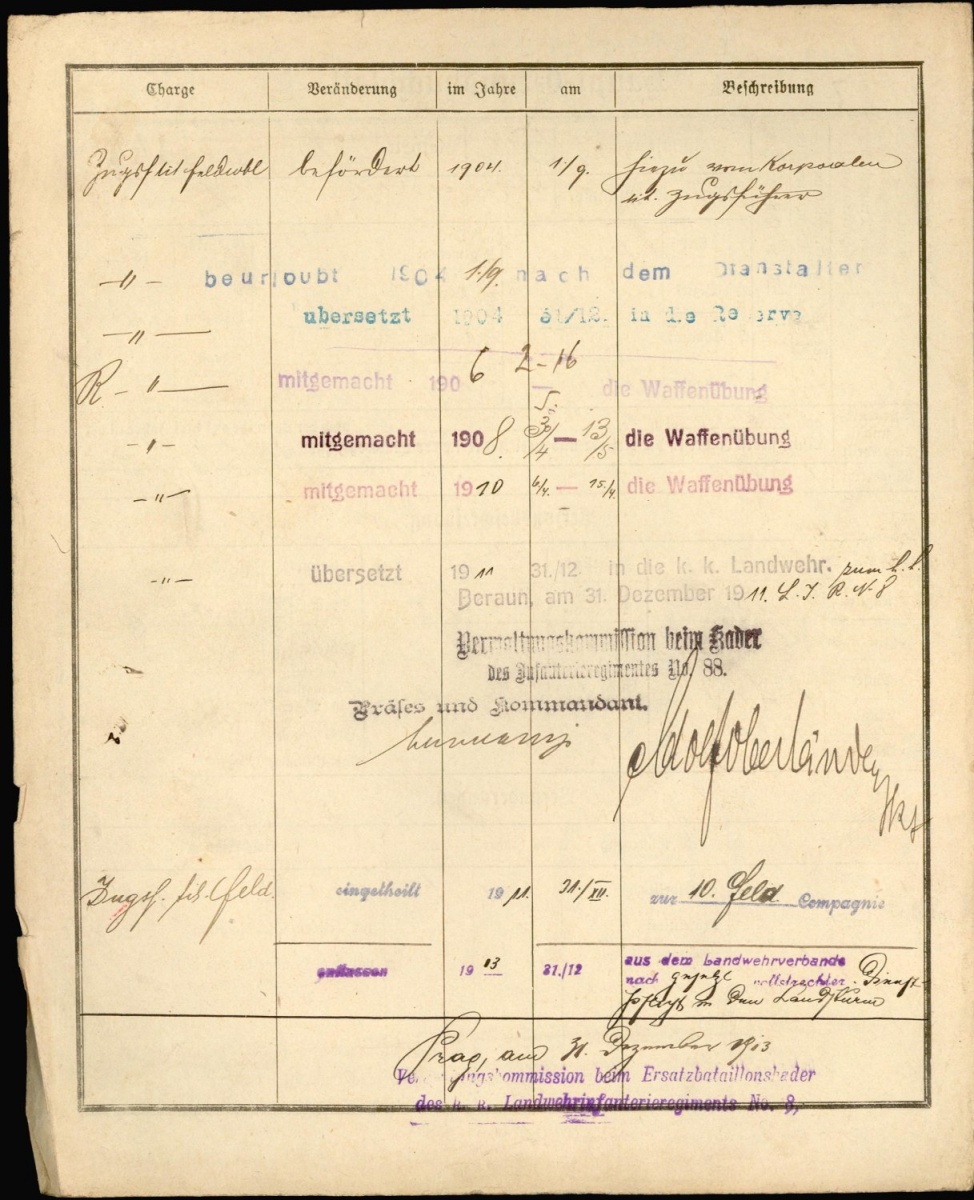 Charge Veränderung im Jahre am Beschreibung
Zugsf tit feldwbl befördert 1904. 1./9. hiezu vom Korporalen
tit. Zugsführer
—„— beurlaubt 1904 1./9. nach dem
—„— übersetzt 1904 31/12. in die Reserve
R —„— mitgemacht 1906 2—16 die Waffenübung
5.
—„— mitgemacht 1908. — 13/5 die Waffenübung
—„— mitgemacht 1910 6/4. — 15./4. die Waffenübung
—„— übersetzt 1911 31./12. in die k. k. Landwehr. zum k. k.
Beraun, am 31. Dezember 1911. L. I. R. N. 8
Verwaltungskommission beim Kader
des Infanterieregimentes No. 88.
Präses und Kommandant.
Adolf Oberländer
Zugsf. tit. Feld. eingetheilt 1911. 31./XII. zur 10. Feld Compagnie
entlassen 1913 31./12 aus dem Landwehrverbande
nach gesetzl vollstreckter Dienst-
pflicht in den Landsturm
Prag, am 31. Dezember 1913
Verwaltungskommission beim Ersatzbataillonskader
des k. k. Landwehrinfanterieregiments No. 8,